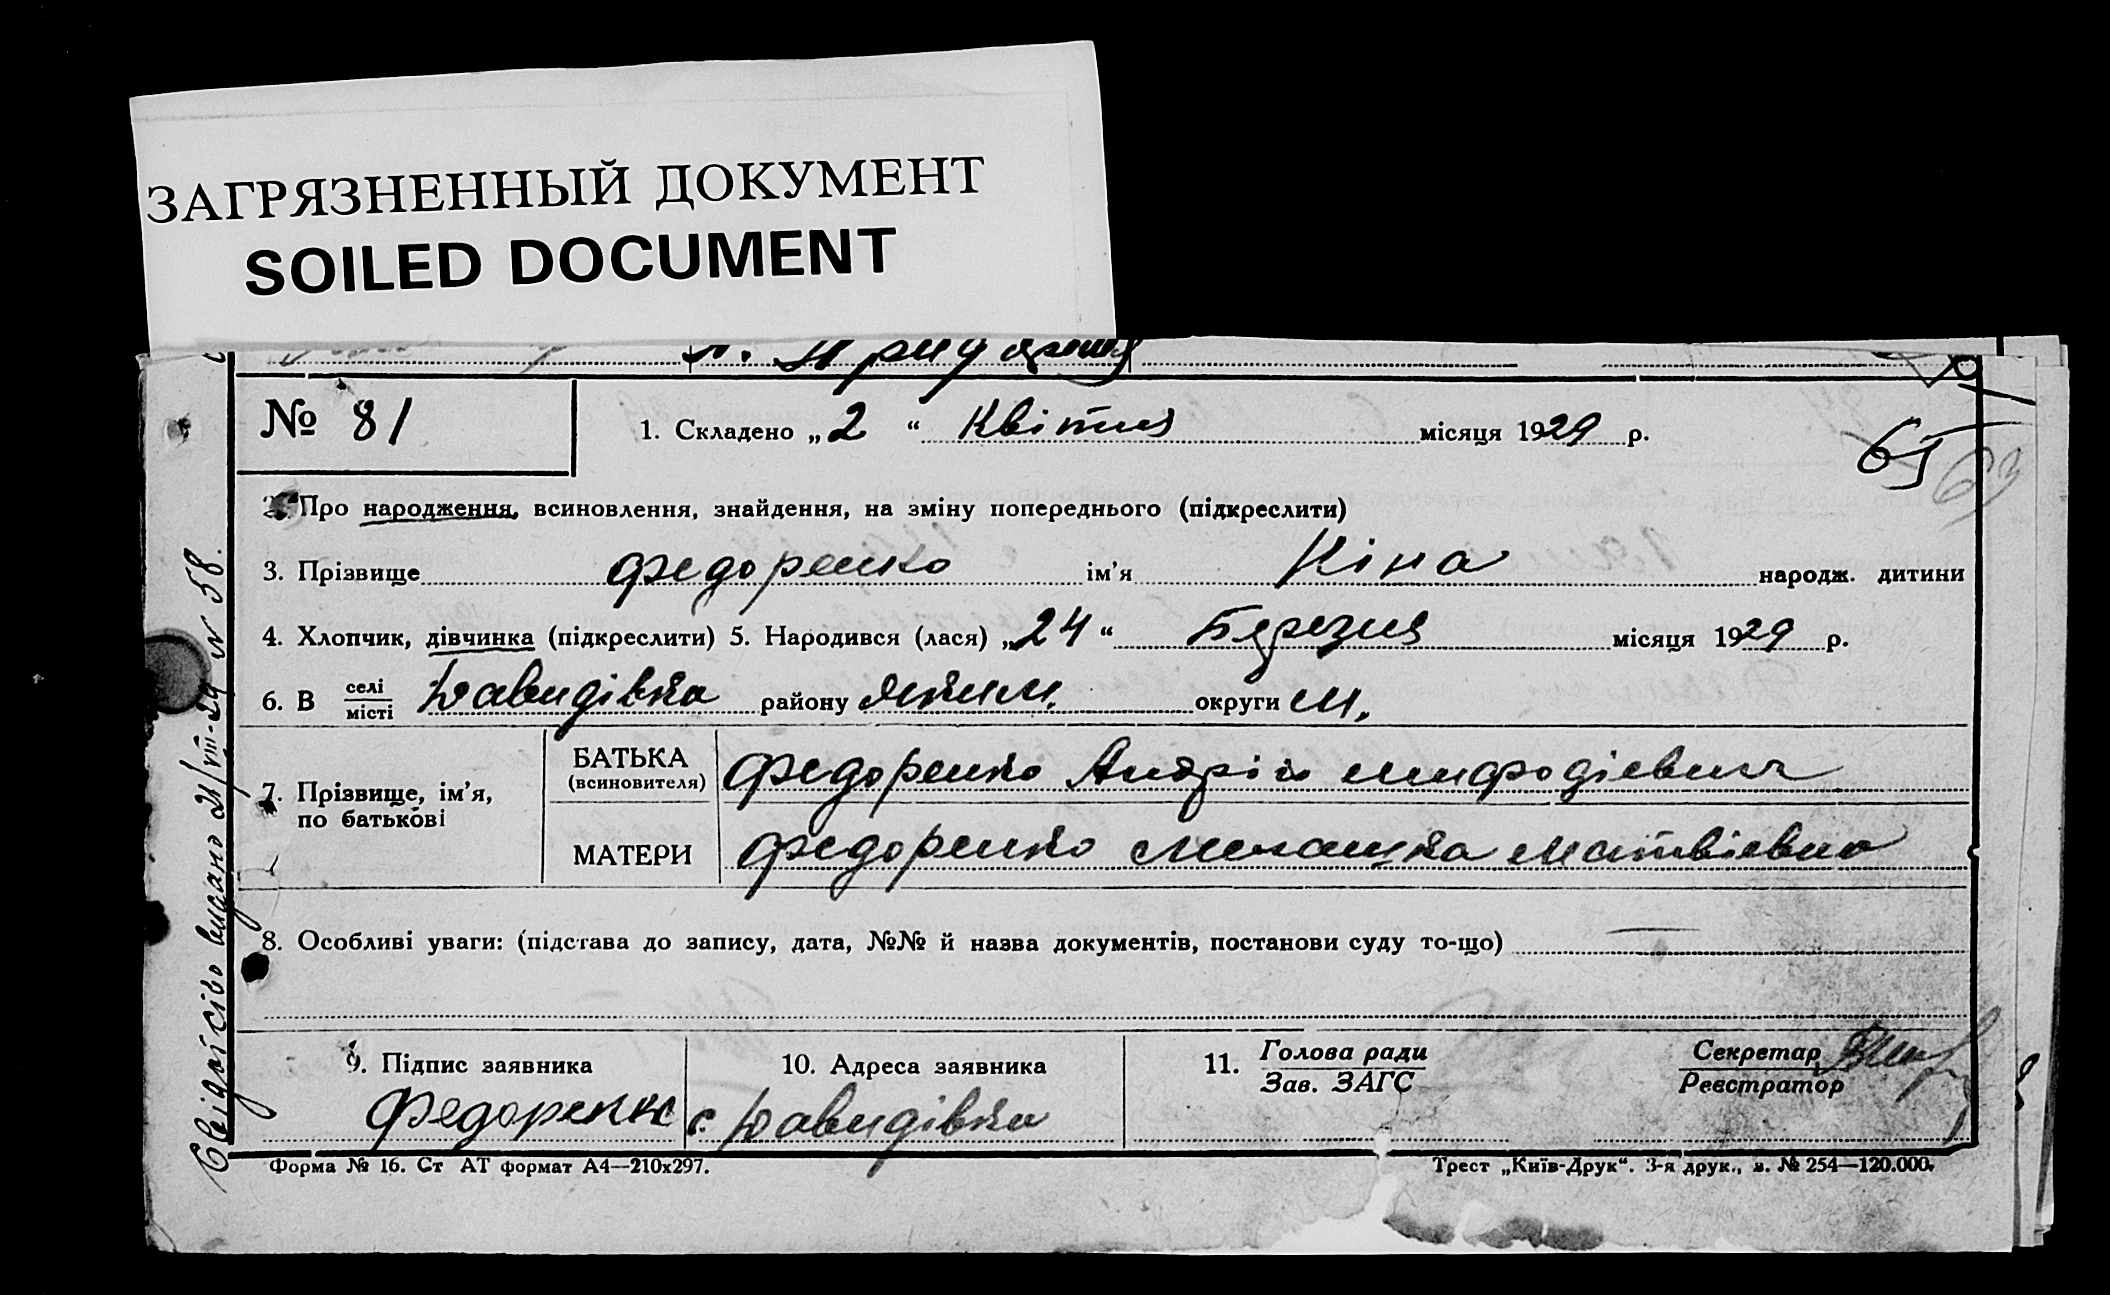 ЗАГРЯЗНЕННЫЙ ДОКУМЕНТ
SOILED DOCUMENT
№ 81
1. Складено „ 2 “ Квітня місяця 1929 р.
65
63
2. Про народження, всиновлення, знайдення, на зміну попереднього (підкреслити)
3. Прізвище Федоренко ім’я Ніна народж. дитини
4. Хлопчик, дівчинка (підкреслити) 5. Народився (лася) „ 24 “ Березня місяця 1929 р.
6. В селі
місті Давидівка району Яким. округи М.
7. Прізвище, ім’я,
по батькові
БАТЬКА
(всиновителя)
Федоренко Андрій Мифодієвич
МАТЕРИ
Федоренко Меланка Матвієвна
8. Особливі уваги: (підстава до запису, дата, №№ й назва документів, постанови суду то-що)
9. Підпис заявника
Федоренко
10. Адреса заявника
с. Давидівка
11. Голова ради
Зав. ЗАГС
Секретар
Реєстратор
Форма № 16. Ст АТ формат А4—210х297.
Трест „Київ-Друк“. 3-я друк., з. № 254—120.000.
видано 21/VIII-29 N 58.